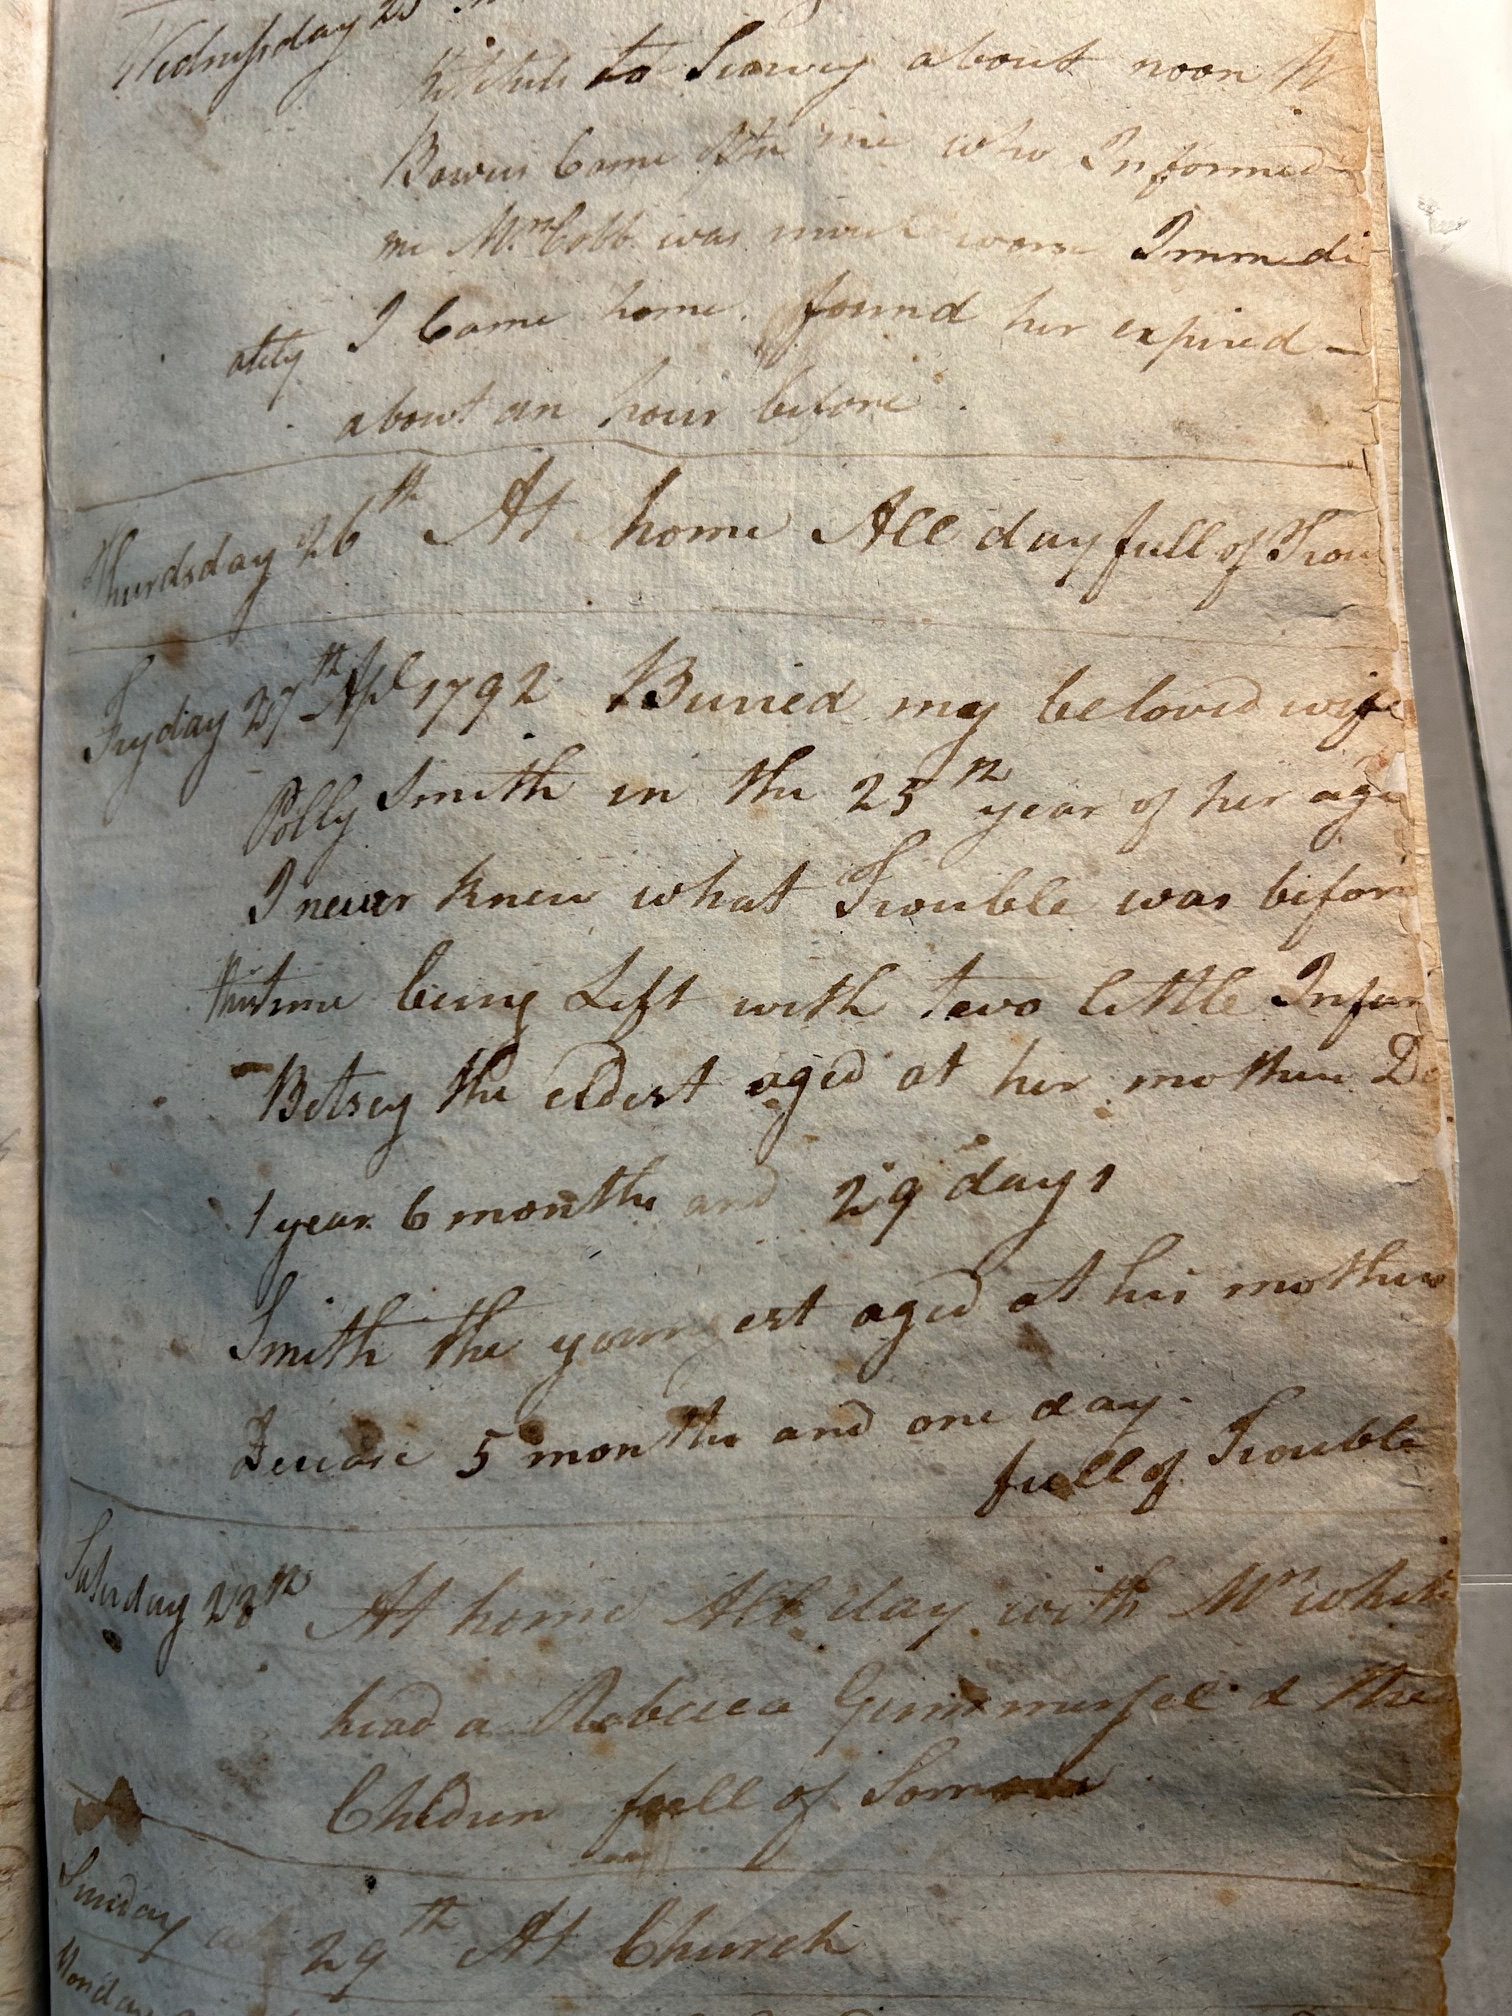 Wednesday 25
to about noon
Came After me who Informed
me Mrs Cobb was much worse Immedi
ately I Came home found her expired -
about an hour before
Thurdsday 26th At home All day full of Trou
Fryday 27th Apl 1792 Buried my beloved wife
Polly Smith in the 25th year of her age
I never knew what Trouble was before
this time being Left with two little Infan
- Betsey the eldest aged at her mothers De
1 year 6 months and 29 days
Smith the youngest aged at his mothers
Decease 5 months and one day -
full of Trouble
Saturday 28th At home All day with Mrs white
head a Rebecca & the
Childern full of Sorrow
Sunday 29th At Church
Monday